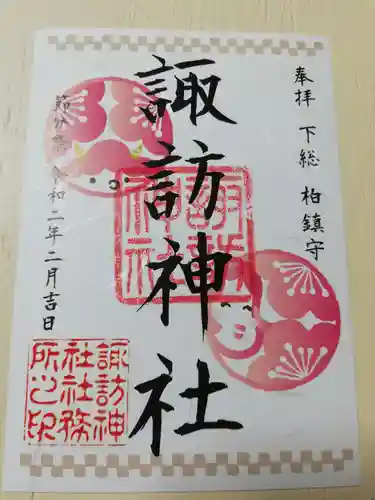 奉拝 下総 柏鎮守
諏訪神社
諏訪神社
節分祭 令和二年二月吉日
諏訪神
社社務
所之印